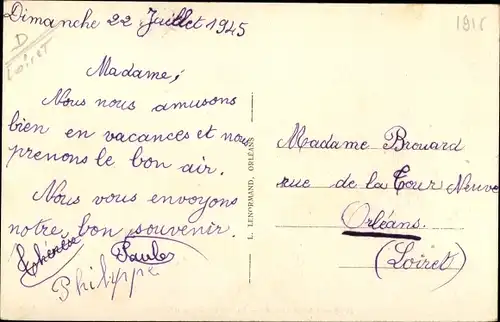 Dimanche 22 Juillet 1945
D
Loiret
Madame,
Nous nous amusons
bien en vacances et nous
prenons le bon air.
Nous vous envoyons
notre bon souvenir.
Thérèse
Paule
Philippe
L. LENORMAND, ORLÉANS
Madame Brouard
rue de la Tour Neuve
Orléans.
(Loiret)